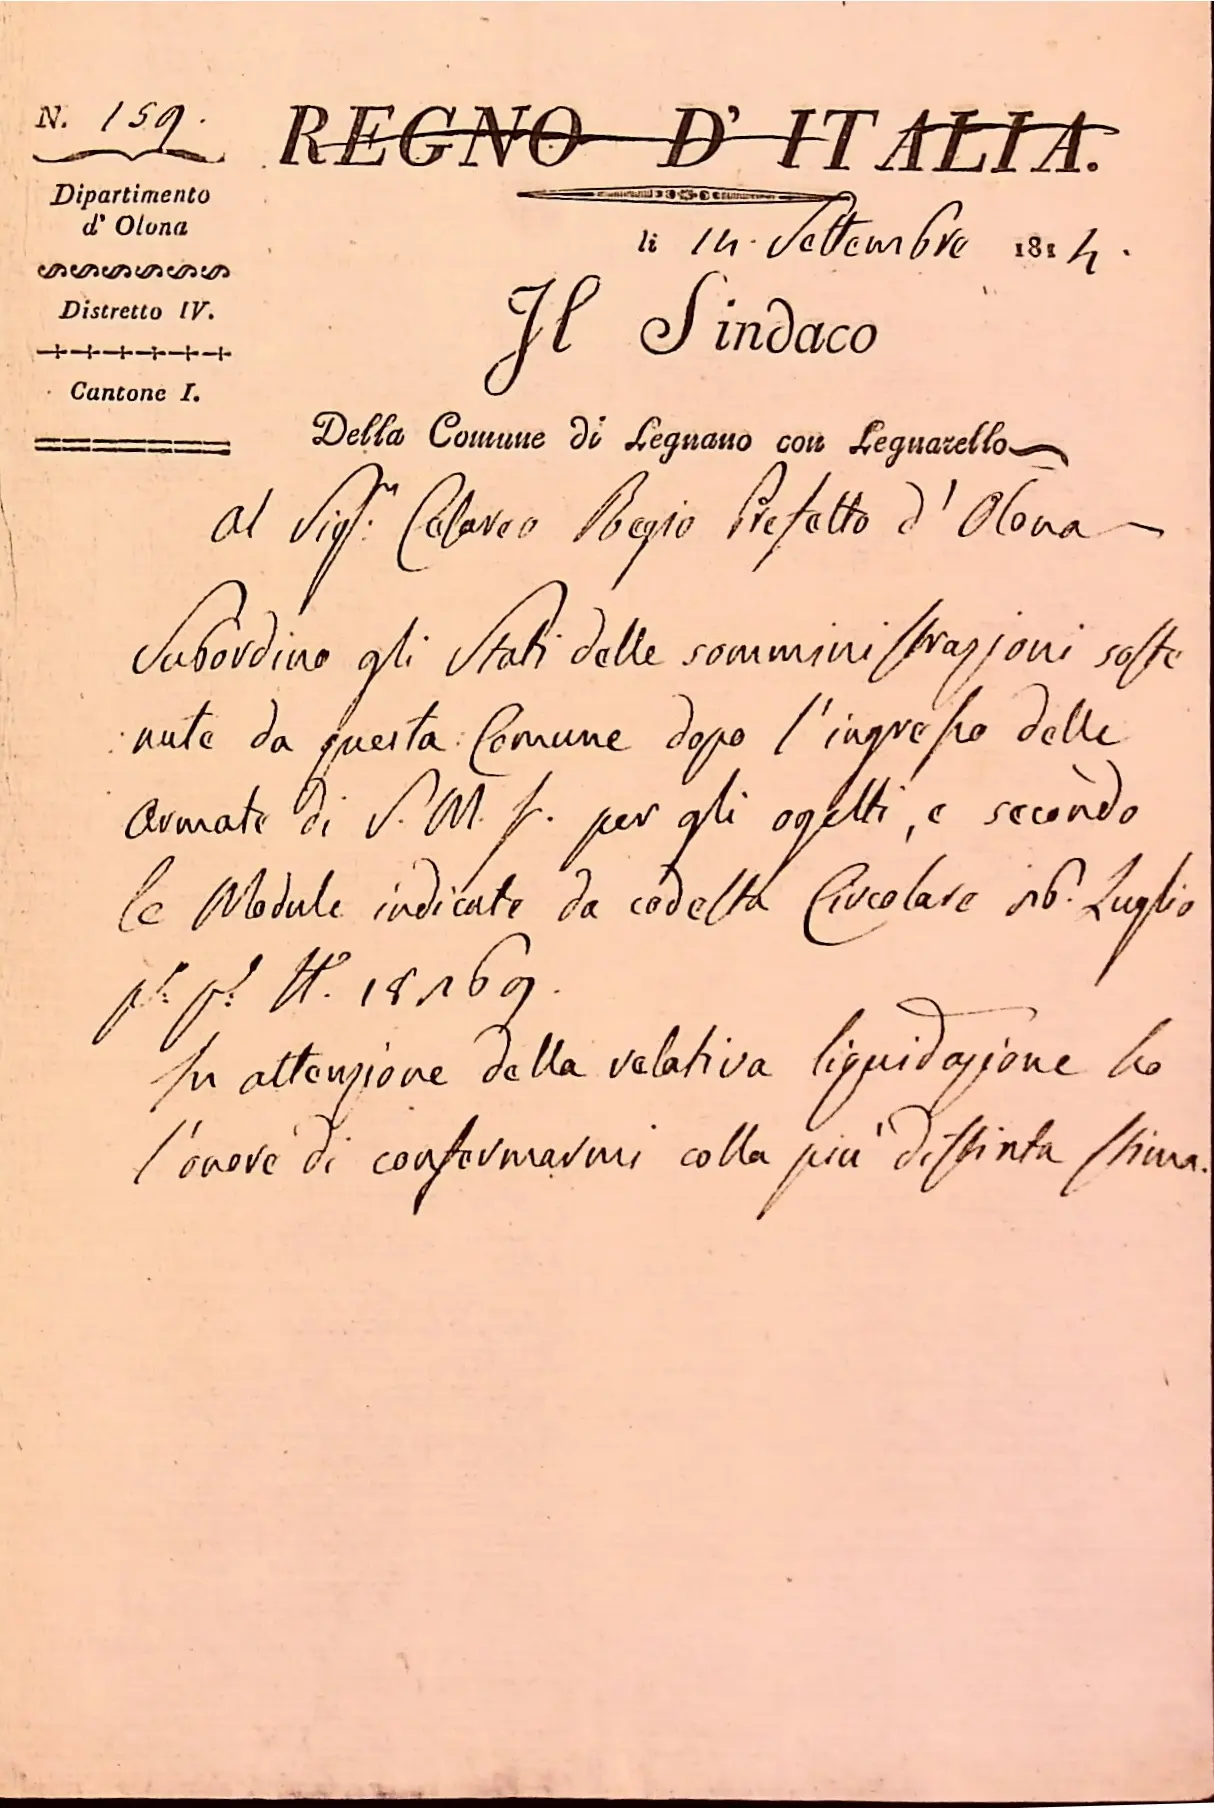 N. 159.
REGNO D' ITALIA.
Dipartimento
d' Olona
li 14. Settembre 1814.
Distretto IV.
Il Sindaco
Cantone I.
Della Comune di Legnano con Legnarello
Al Sigr. Cavaliere Regio Prefetto d' Olona
Subordino gli Stati delle somministrazioni soste
nute da questa Comune dopo l'ingresso delle
Armate di S. M. per gli ogetti, e secondo
le Module indicate da codesta Circolare 16. Luglio
p. p. N. 18169.
In attenzione della relativa liquidazione ho
l'onore di confermarmi colla più distinta stima.